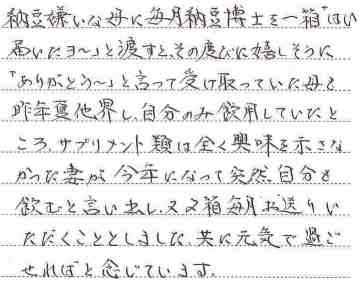 納豆嫌いな母に毎月納豆博士を一箱"はい
届いたヨ〜」と渡すと、その度びに嬉しそうに
「ありがとう〜」と言って受け取っていた母も
昨年夏他界し、自分のみ飲用していたと
ころ、サプリメント類は全く興味を示さな
かった妻が今年になって突然、自分も
飲むと言い出し、又2箱毎月お送りい
ただくこととしました。共に元気で過ご
せればと念じています。